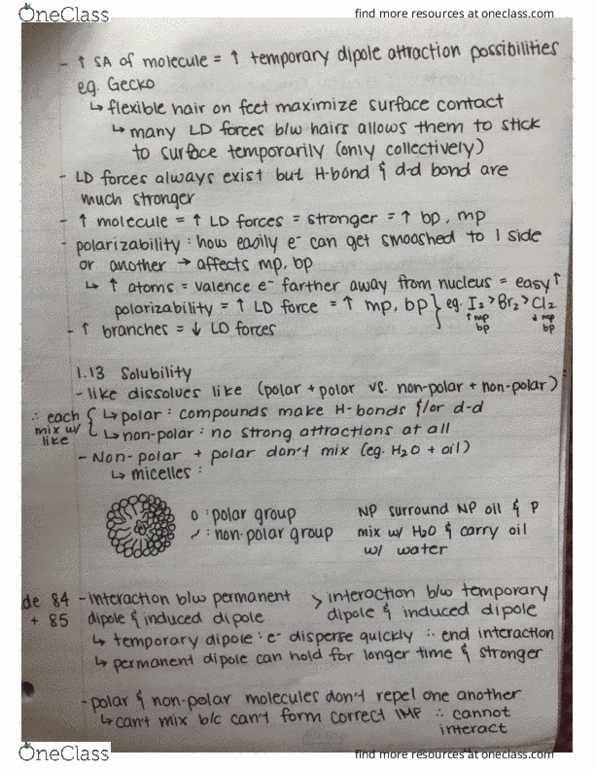 OneClass
find more resources at oneclass.com
- ↑ SA of molecule = ↑ temporary dipole attraction possibilities
eg. Gecko
↳ flexible hair on feet maximize surface contact
↳ many LD forces b/w hairs allows them to stick
to surface temporarily (only collectively)
- LD forces always exist but H-bond & d-d bond are
much stronger
- ↑ molecule = ↑ LD forces = stronger = ↑ bp, mp
- polarizability : how easily e⁻ can get smooshed to 1 side
or another → affects mp, bp
↳ ↑ atoms = valence e⁻ farther away from nucleus = easy↑
polarizability = ↑ LD force = ↑ mp, bp } eg. I₂ > Br₂ > Cl₂
↑mp bp ↓mp bp
- ↑ branches = ↓ LD forces
1.13 Solubility
- like dissolves like (polar + polar vs. non-polar + non-polar)
∴ each mix w/ like { ↳ polar : compounds make H-bonds &/or d-d
↳ non-polar : no strong attractions at all
- Non-polar + polar don't mix (eg. H₂O + oil)
↳ micelles :
o : polar group
: non-polar group
NP surround NP oil & P
mix w/ H₂O & carry oil
w/ water
de 84 + 85
- interaction b/w permanent dipole & induced dipole > interaction b/w temporary dipole & induced dipole
↳ temporary dipole : e⁻ disperse quickly ∴ end interaction
↳ permanent dipole can hold for longer time & stronger
- polar & non-polar molecules don't repel one another
↳ can't mix b/c can't form correct IMF ∴ cannot
interact
OneClass
find more resources at oneclass.com